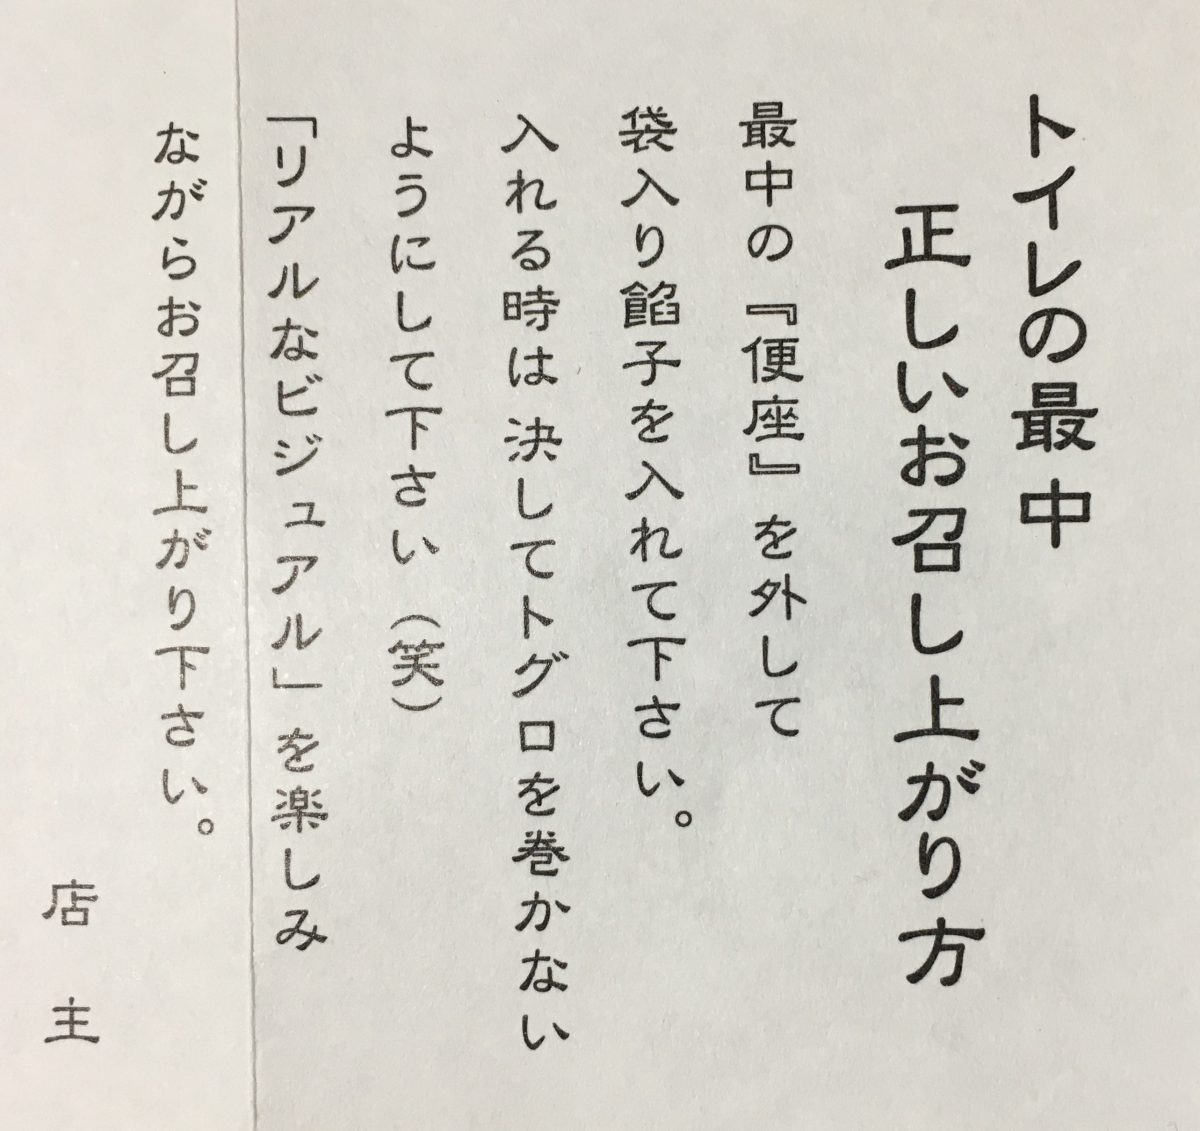 トイレの最中
正しいお召し上がり方
最中の『便座』を外して
袋入り餡子を入れて下さい。
入れる時は 決してトグロを巻かない
ようにして下さい（笑）
「リアルなビジュアル」を楽しみ
ながらお召し上がり下さい。
店 主